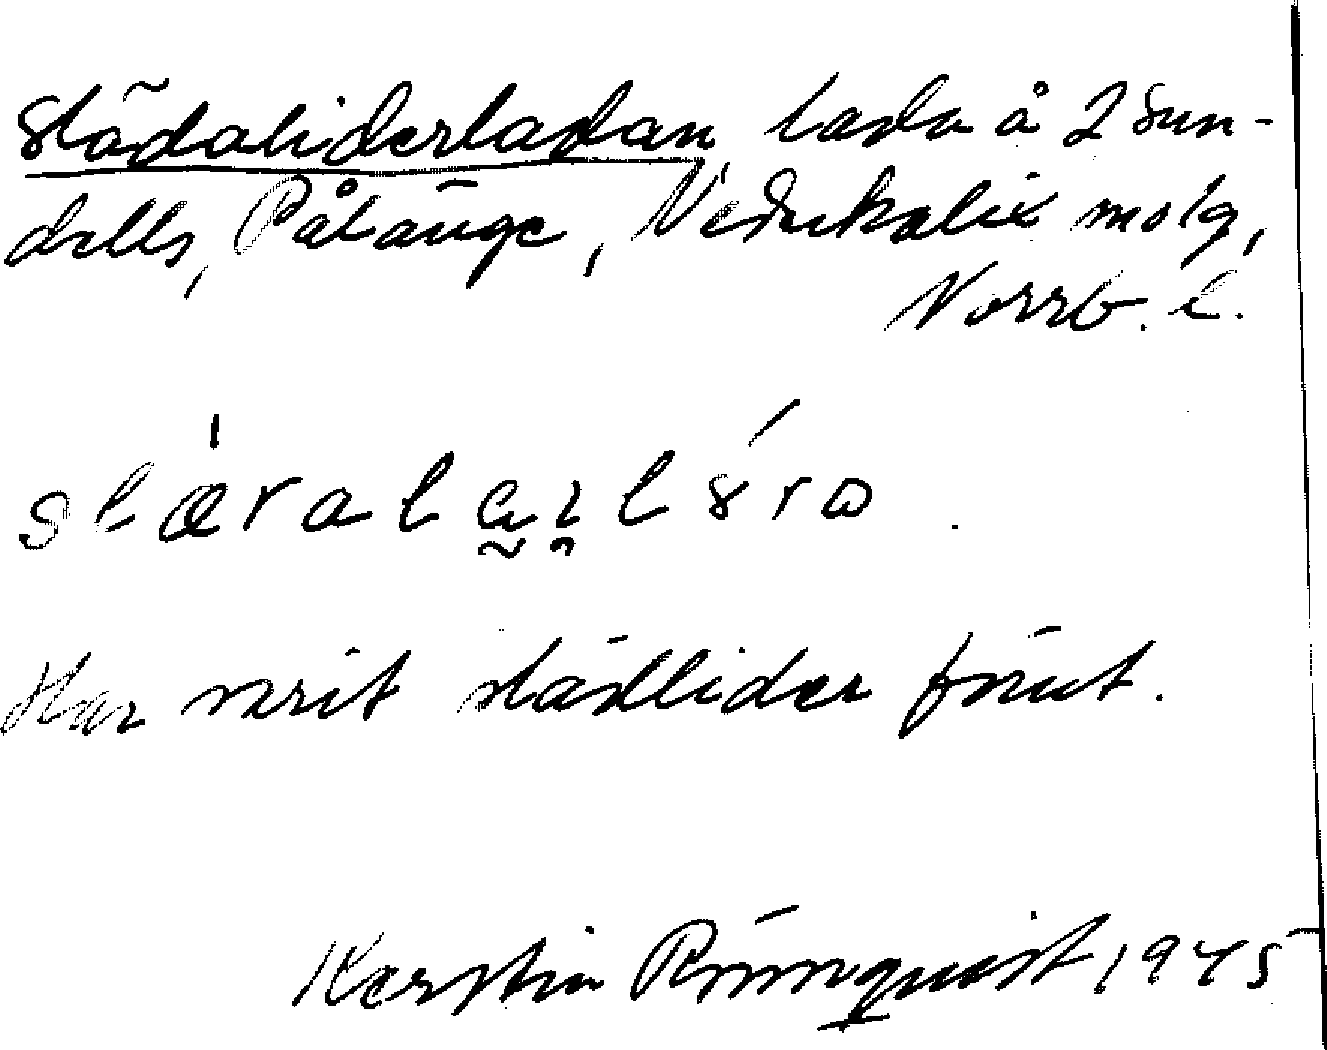 Slädaliderladan, lada å 2 Sun-
dells, Pålänge, Nederkalix sn o lg,
Norrb. l.
slærala
Har varit slädlider förut.
Kerstin Rönnquist 1945